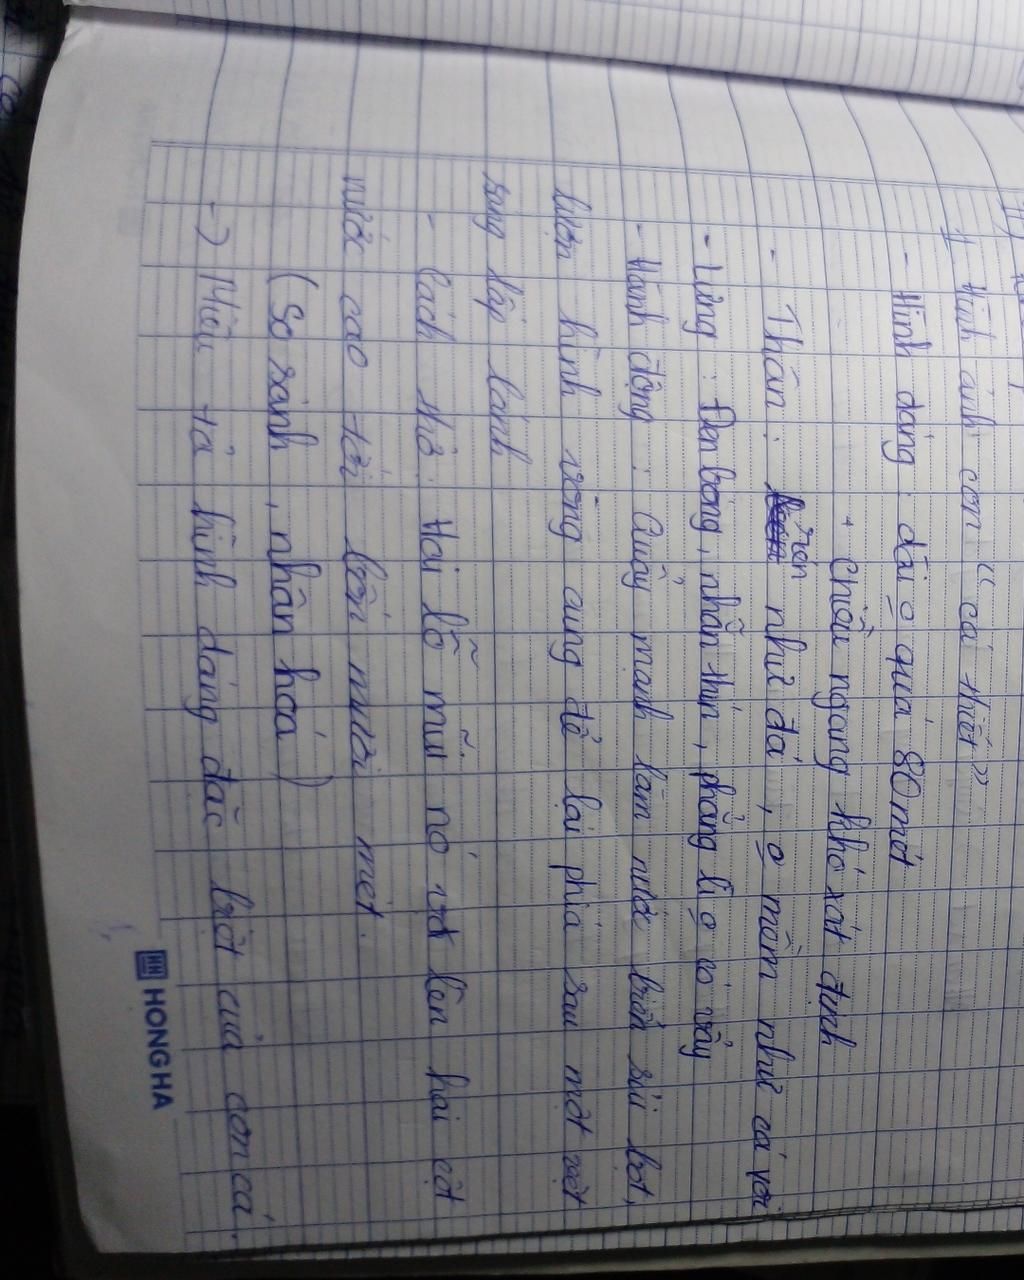 1, Hình ảnh con " cá thiết"
- Hình dáng: dài o quá 80 mét
+ Chiều ngang khó xát định
- Thân: rắn như đá, o mềm như cá voi
- Lưng: Đen bóng, nhẵn thín, phẳng lì o có vẩy
- Hành động: Quẫy mạnh làm nước biển sủi bọt,
lượn hình vòng cung để lại phía sau một vệt
sáng lấp lánh
- Cách thở: Hai lỗ mũi nó vọt lên hai cột
nước cao tới bốn mươi mét.
(So sánh, nhân hóa)
-> Miêu tả hình dáng đặc biệt của con cá.
HH HONG HA